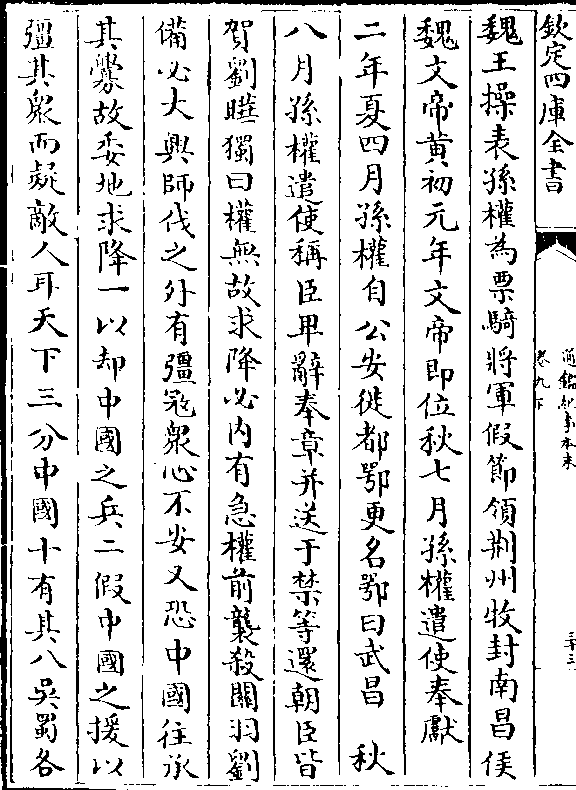 欽定四庫全書
通鑑紀事本末
卷九下
三十三
魏王操表孫權為票騎將軍假節領荆州牧封南昌侯
魏文帝黄初元年文帝即位秋七月孫權遣使奉獻
二年夏四月孫權自公安徙都鄂更名鄂曰武昌　秋
八月孫權遣使稱臣卑辭奉章并送于禁等還朝臣皆
賀劉曄獨曰權無故求降必内有急權前襲殺關羽劉
備必大興師伐之外有彊冦衆心不安又恐中國徃承
其釁故委地求降一以却中國之兵二假中國之援以
彊其衆而疑敵人耳天下三分中國十有其八吳蜀各